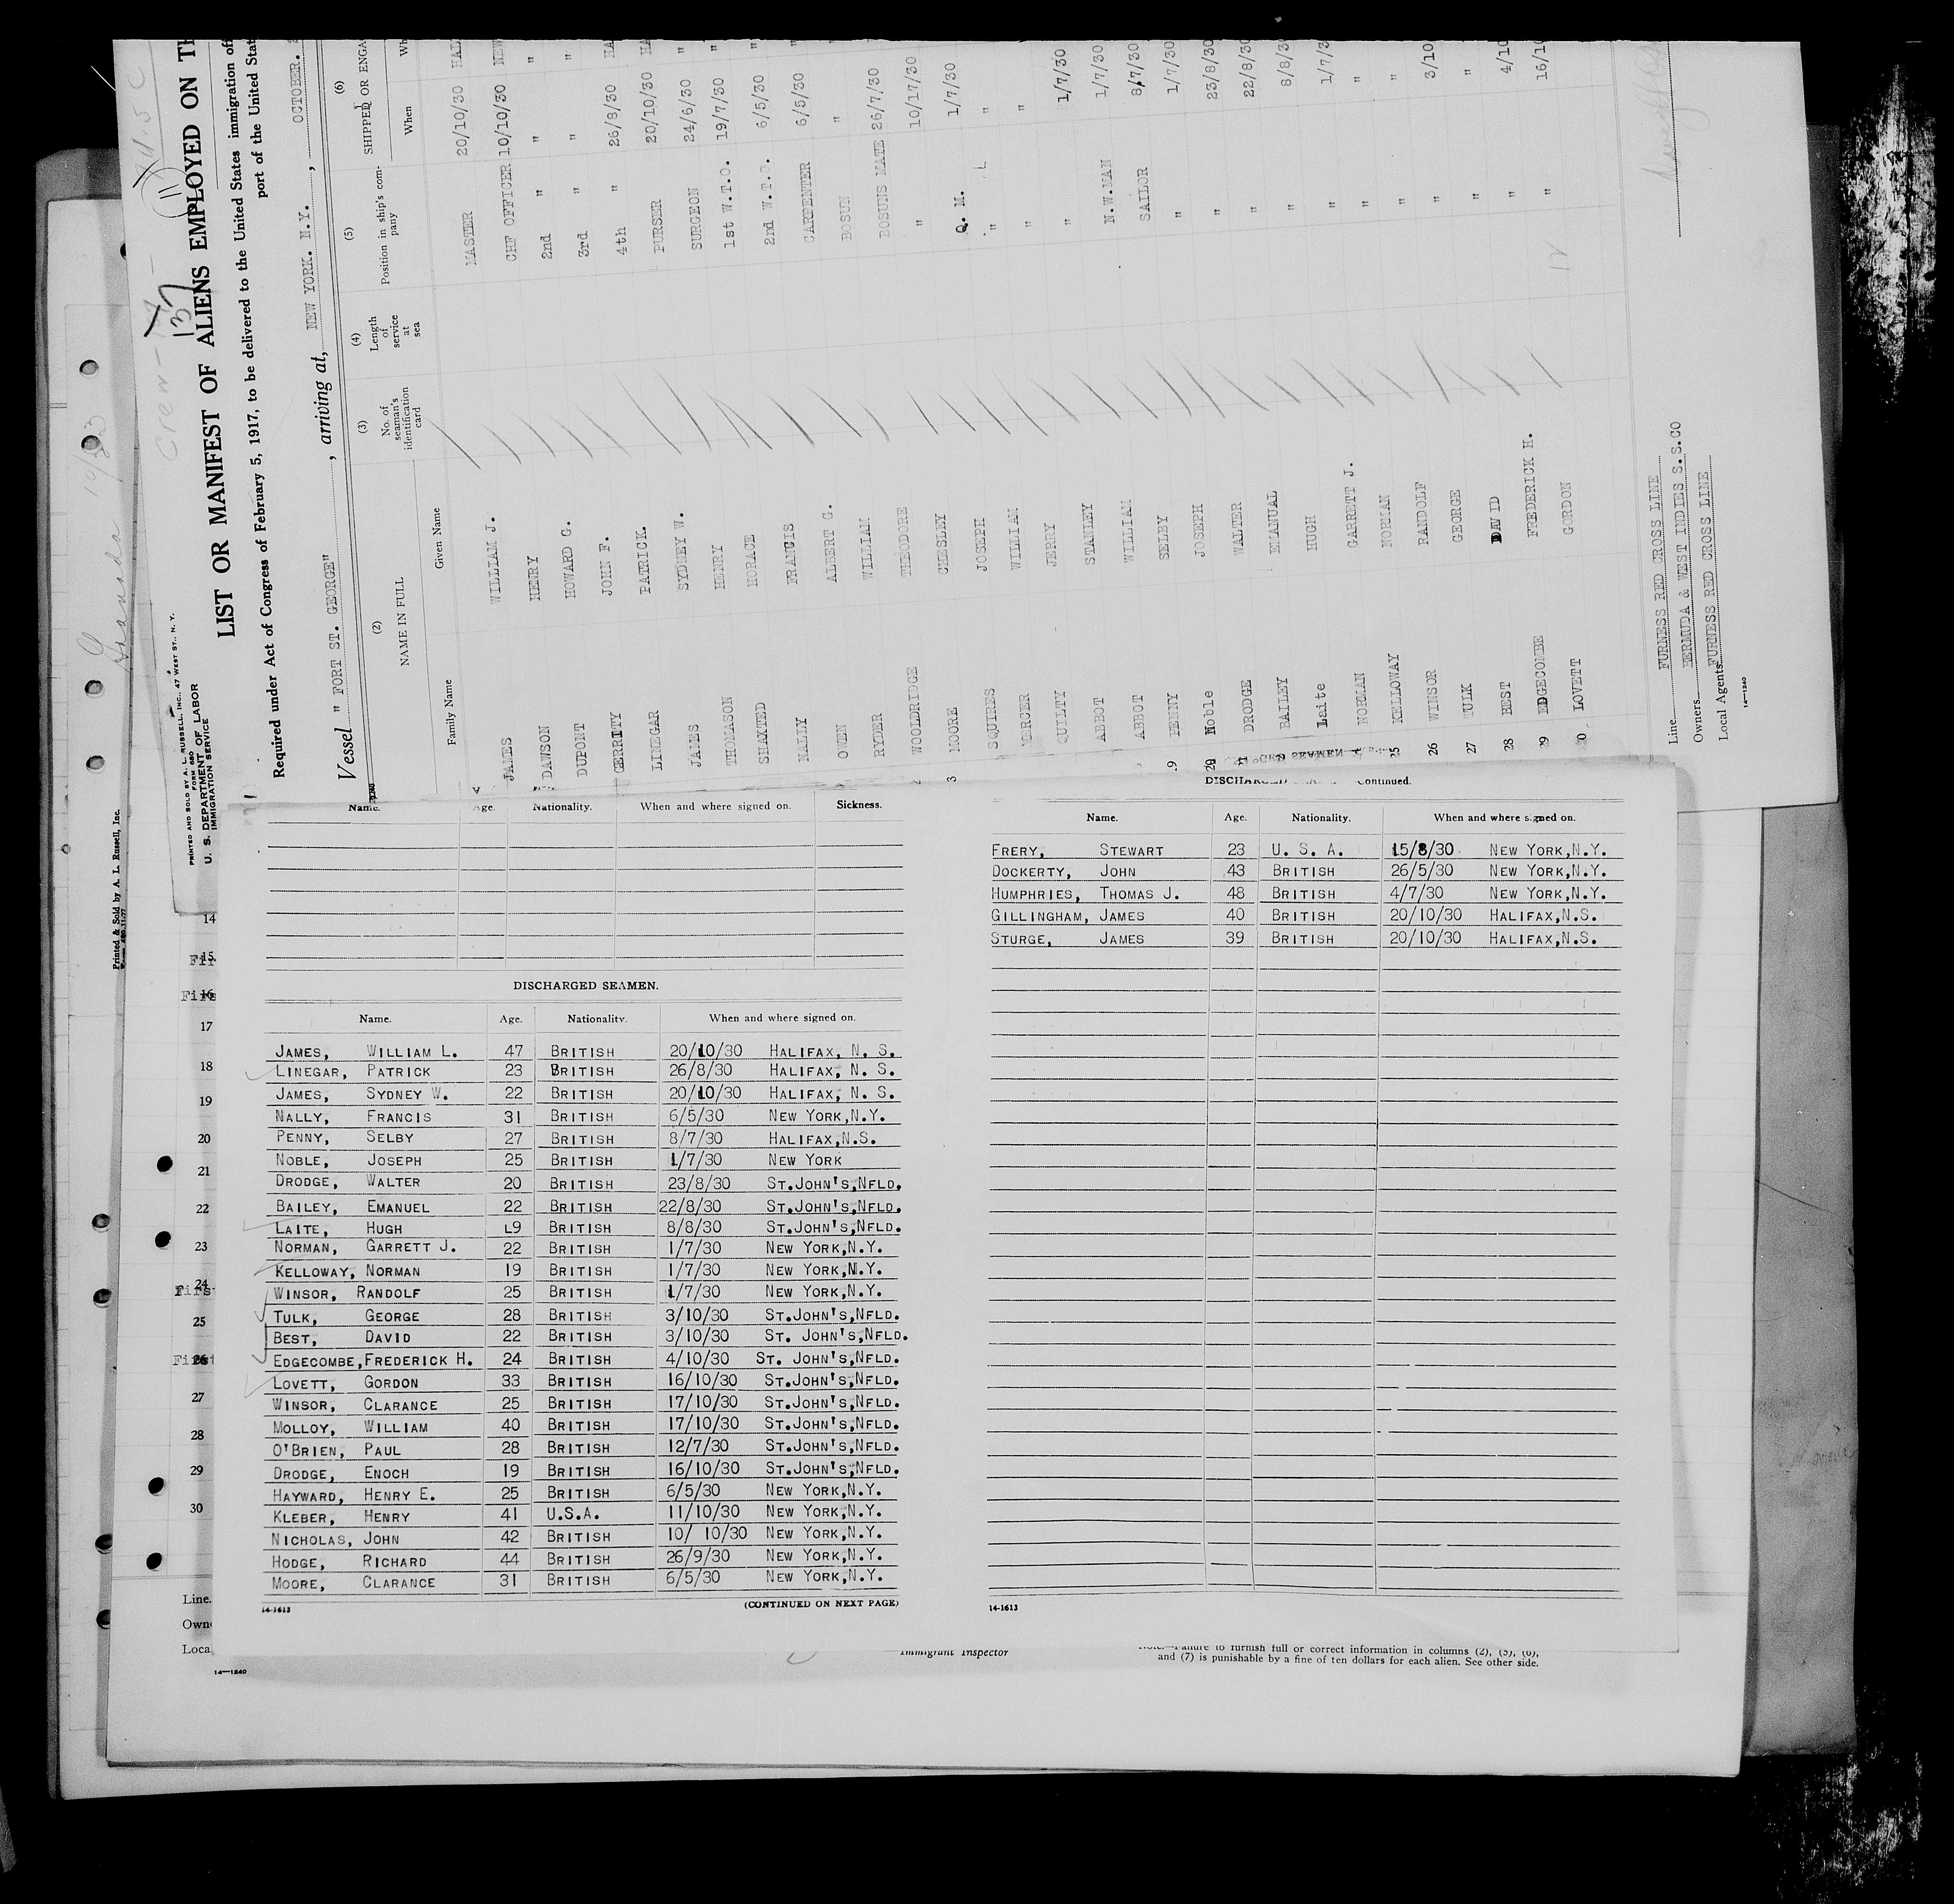 LIST OR MANIFEST OF ALIENS EMPLOYED ON
Required under Act of Congress of February 5, 1917, to be delivered to the United States immigration
port of the United
PRINTED AND SOLD BY A. L. RUSSELL, INC., 47 WEST ST., N. Y.
FORM 680
U. S. DEPARTMENT OF LABOR
IMMIGRATION SERVICE
Vessel " FORT ST. GEORGE" , arriving at, NEW YORK. N.Y. , OCTOBER.
(2) (3) (4) (5) (6)
NAME IN FULL No. of seaman's identification card Length of service at sea Position in ship's company SHIPPED OR
Family Name Given Name When
JAMES WILLIAM J. MASTER 20/10/30
DAWSON HENRY CHF OFFICER 10/10/30
DUPONT HOWARD G. 2nd " "
GERRITY JOHN F. 3rd " "
LINEGAR PATRICK. 4th " 26/8/30
JAMES SYDNEY W. PURSER 20/10/30
THOMASON HENRY SURGEON 24/6/30
SHAXTED HORACE 1st W.T.O. 19/7/30
NALLY FRANCIS 2nd W.T.O. 6/5/30
OWEN ALBERT G. CARPENTER 6/5/30
RYDER WILLIAM BOSUN "
WOOLDRIDGE THEODORE BOSUNS MATE 26/7/30
MOORE CHESLEY " 10/17/30
SQUIRES JOSEPH Q. M. 1/7/30
MERCER WILLIAM " "
QUILTY JERRY " "
ABBOT STANLEY " 1/7/30
ABBOT WILLIAM N.W.MAN 1/7/30
PENNY SELBY SAILOR 8/7/30
20 Noble JOSEPH " 1/7/30
DRODGE WALTER " 23/8/30
BAILEY EMANUAL " 22/8/30
Laite HUGH " 8/8/30
NORMAN GARRETT J. "
25 KELLOWAY NORMAN " "
26 WINSOR RANDOLF " "
27 TULK GEORGE "
28 BEST DAVID " "
29 EDGECOMBE FREDERICK H. "
30 LOVETT GORDON "
Line FURNESS RED CROSS LINE
Owners BERMUDA & WEST INDIES S.S.CO
Local Agents FURNESS RED CROSS LINE
14—1240
Printed & Sold by A. L. Russell, Inc.
Name. Age. Nationality. When and where signed on. Sickness.
DISCHARGED SEAMEN.
Name. Age. Nationality. When and where signed on.
JAMES, WILLIAM L. 47 BRITISH 20/10/30 HALIFAX, N. S.
LINEGAR, PATRICK 23 BRITISH 26/8/30 HALIFAX, N. S.
JAMES, SYDNEY W. 22 BRITISH 20/10/30 HALIFAX, N. S.
NALLY, FRANCIS 31 BRITISH 6/5/30 NEW YORK,N.Y.
PENNY, SELBY 27 BRITISH 8/7/30 HALIFAX,N.S.
NOBLE, JOSEPH 25 BRITISH 1/7/30 NEW YORK
DRODGE, WALTER 20 BRITISH 23/8/30 ST.JOHN'S,NFLD,
BAILEY, EMANUEL 22 BRITISH 22/8/30 ST.JOHN'S,NFLD.
LAITE, HUGH L9 BRITISH 8/8/30 ST.JOHN'S,NFLD.
NORMAN, GARRETT J. 22 BRITISH 1/7/30 NEW YORK,N.Y.
KELLOWAY, NORMAN 19 BRITISH 1/7/30 NEW YORK,N.Y.
WINSOR, RANDOLF 25 BRITISH 1/7/30 NEW YORK,N.Y.
TULK, GEORGE 28 BRITISH 3/10/30 ST.JOHN'S,NFLD.
BEST, DAVID 22 BRITISH 3/10/30 ST. JOHN'S,NFLD.
EDGECOMBE,FREDERICK H. 24 BRITISH 4/10/30 ST. JOHN'S,NFLD.
LOVETT, GORDON 33 BRITISH 16/10/30 ST.JOHN'S,NFLD.
WINSOR, CLARANCE 25 BRITISH 17/10/30 ST.JOHN'S,NFLD.
MOLLOY, WILLIAM 40 BRITISH 17/10/30 ST.JOHN'S,NFLD.
O'BRIEN, PAUL 28 BRITISH 12/7/30 ST.JOHN'S,NFLD.
DRODGE, ENOCH 19 BRITISH 16/10/30 ST.JOHN'S,NFLD.
HAYWARD, HENRY E. 25 BRITISH 6/5/30 NEW YORK,N.Y.
KLEBER, HENRY 41 U.S.A. 11/10/30 NEW YORK,N.Y.
NICHOLAS, JOHN 42 BRITISH 10/ 10/30 NEW YORK,N.Y.
HODGE, RICHARD 44 BRITISH 26/9/30 NEW YORK,N.Y.
MOORE, CLARANCE 31 BRITISH 6/5/30 NEW YORK,N.Y.
14-1613 (CONTINUED ON NEXT PAGE)
Continued.
Name. Age. Nationality. When and where signed on.
FRERY, STEWART 23 U. S. A. 15/8/30 NEW YORK,N.Y.
DOCKERTY, JOHN 43 BRITISH 26/5/30 NEW YORK,N.Y.
HUMPHRIES, THOMAS J. 48 BRITISH 4/7/30 NEW YORK,N.Y.
GILLINGHAM, JAMES 40 BRITISH 20/10/30 HALIFAX,N.S.
STURGE, JAMES 39 BRITISH 20/10/30 HALIFAX,N.S.
14-1613
14
15
16
17
18
19
20
21
22
23
24
25
26
27
28
29
30
Line
14—1240
Immigrant Inspector
furnish full or correct information in columns (2), (5), (6),
and (7) is punishable by a fine of ten dollars for each alien. See other side.